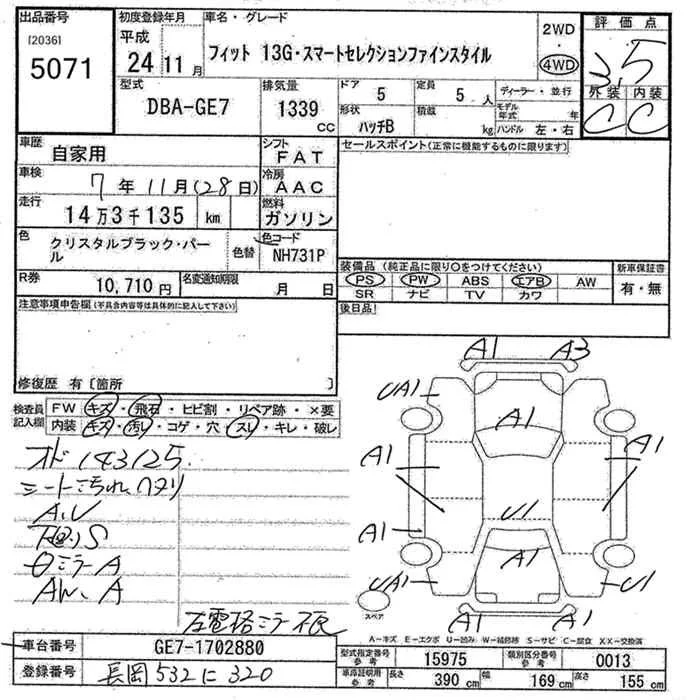 出品番号
[2036]
5071
初度登録年月
平成
24 11 月
車名・グレード
フィット 13G・スマートセレクションファインスタイル
2WD
・
4WD
評価点
3.5
外装 内装
C C
型式
DBA-GE7
排気量
1339 cc
ドア
5
定員
5 人
形状
ハッチB
積載
kg
ディーラー・並行
モデル年式 年
ハンドル 左・右
車歴
自家用
シフト
FAT
車検
7 年 11 月 (28 日)
冷房
AAC
走行
14 万 3 千 135 km
燃料
ガソリン
色
クリスタルブラック・パール
色替
色コード
NH731P
R券
10,710 円
名変通知期限
月 日
セールスポイント(正常に機能するものに限ります)
装備品 (純正品に限り○をつけてください)
PS PW ABS エアB AW
SR ナビ TV カワ
新車保証書
有・無
後日品!
注意事項申告欄 (不具合内容等は具体的に記入して下さい)
修復歴 有 [箇所 ]
検査員記入欄
FW キズ・飛石・ヒビ割・リペア跡・×要
内装 キズ・汚れ・コゲ・穴・スレ・キレ・破レ
オド 143125
シート汚れ ヘタリ
A,U
S
ミラーA
A
左電格ミラー不良
A1 A3
UA1
A1
A1 A1
U1
A1 A1
A1
UA1 U1
A1 A1
スペア
A-キズ E-エクボ U-凹み W-補修跡 S-サビ C-腐食 XX-交換済
車台番号
GE7-1702880
登録番号
長岡 532 に 320
型式指定番号 参考
15975
類別区分番号 参考
0013
車両証明サイズ 参考
長さ 390 cm 幅 169 cm 高さ 155 cm